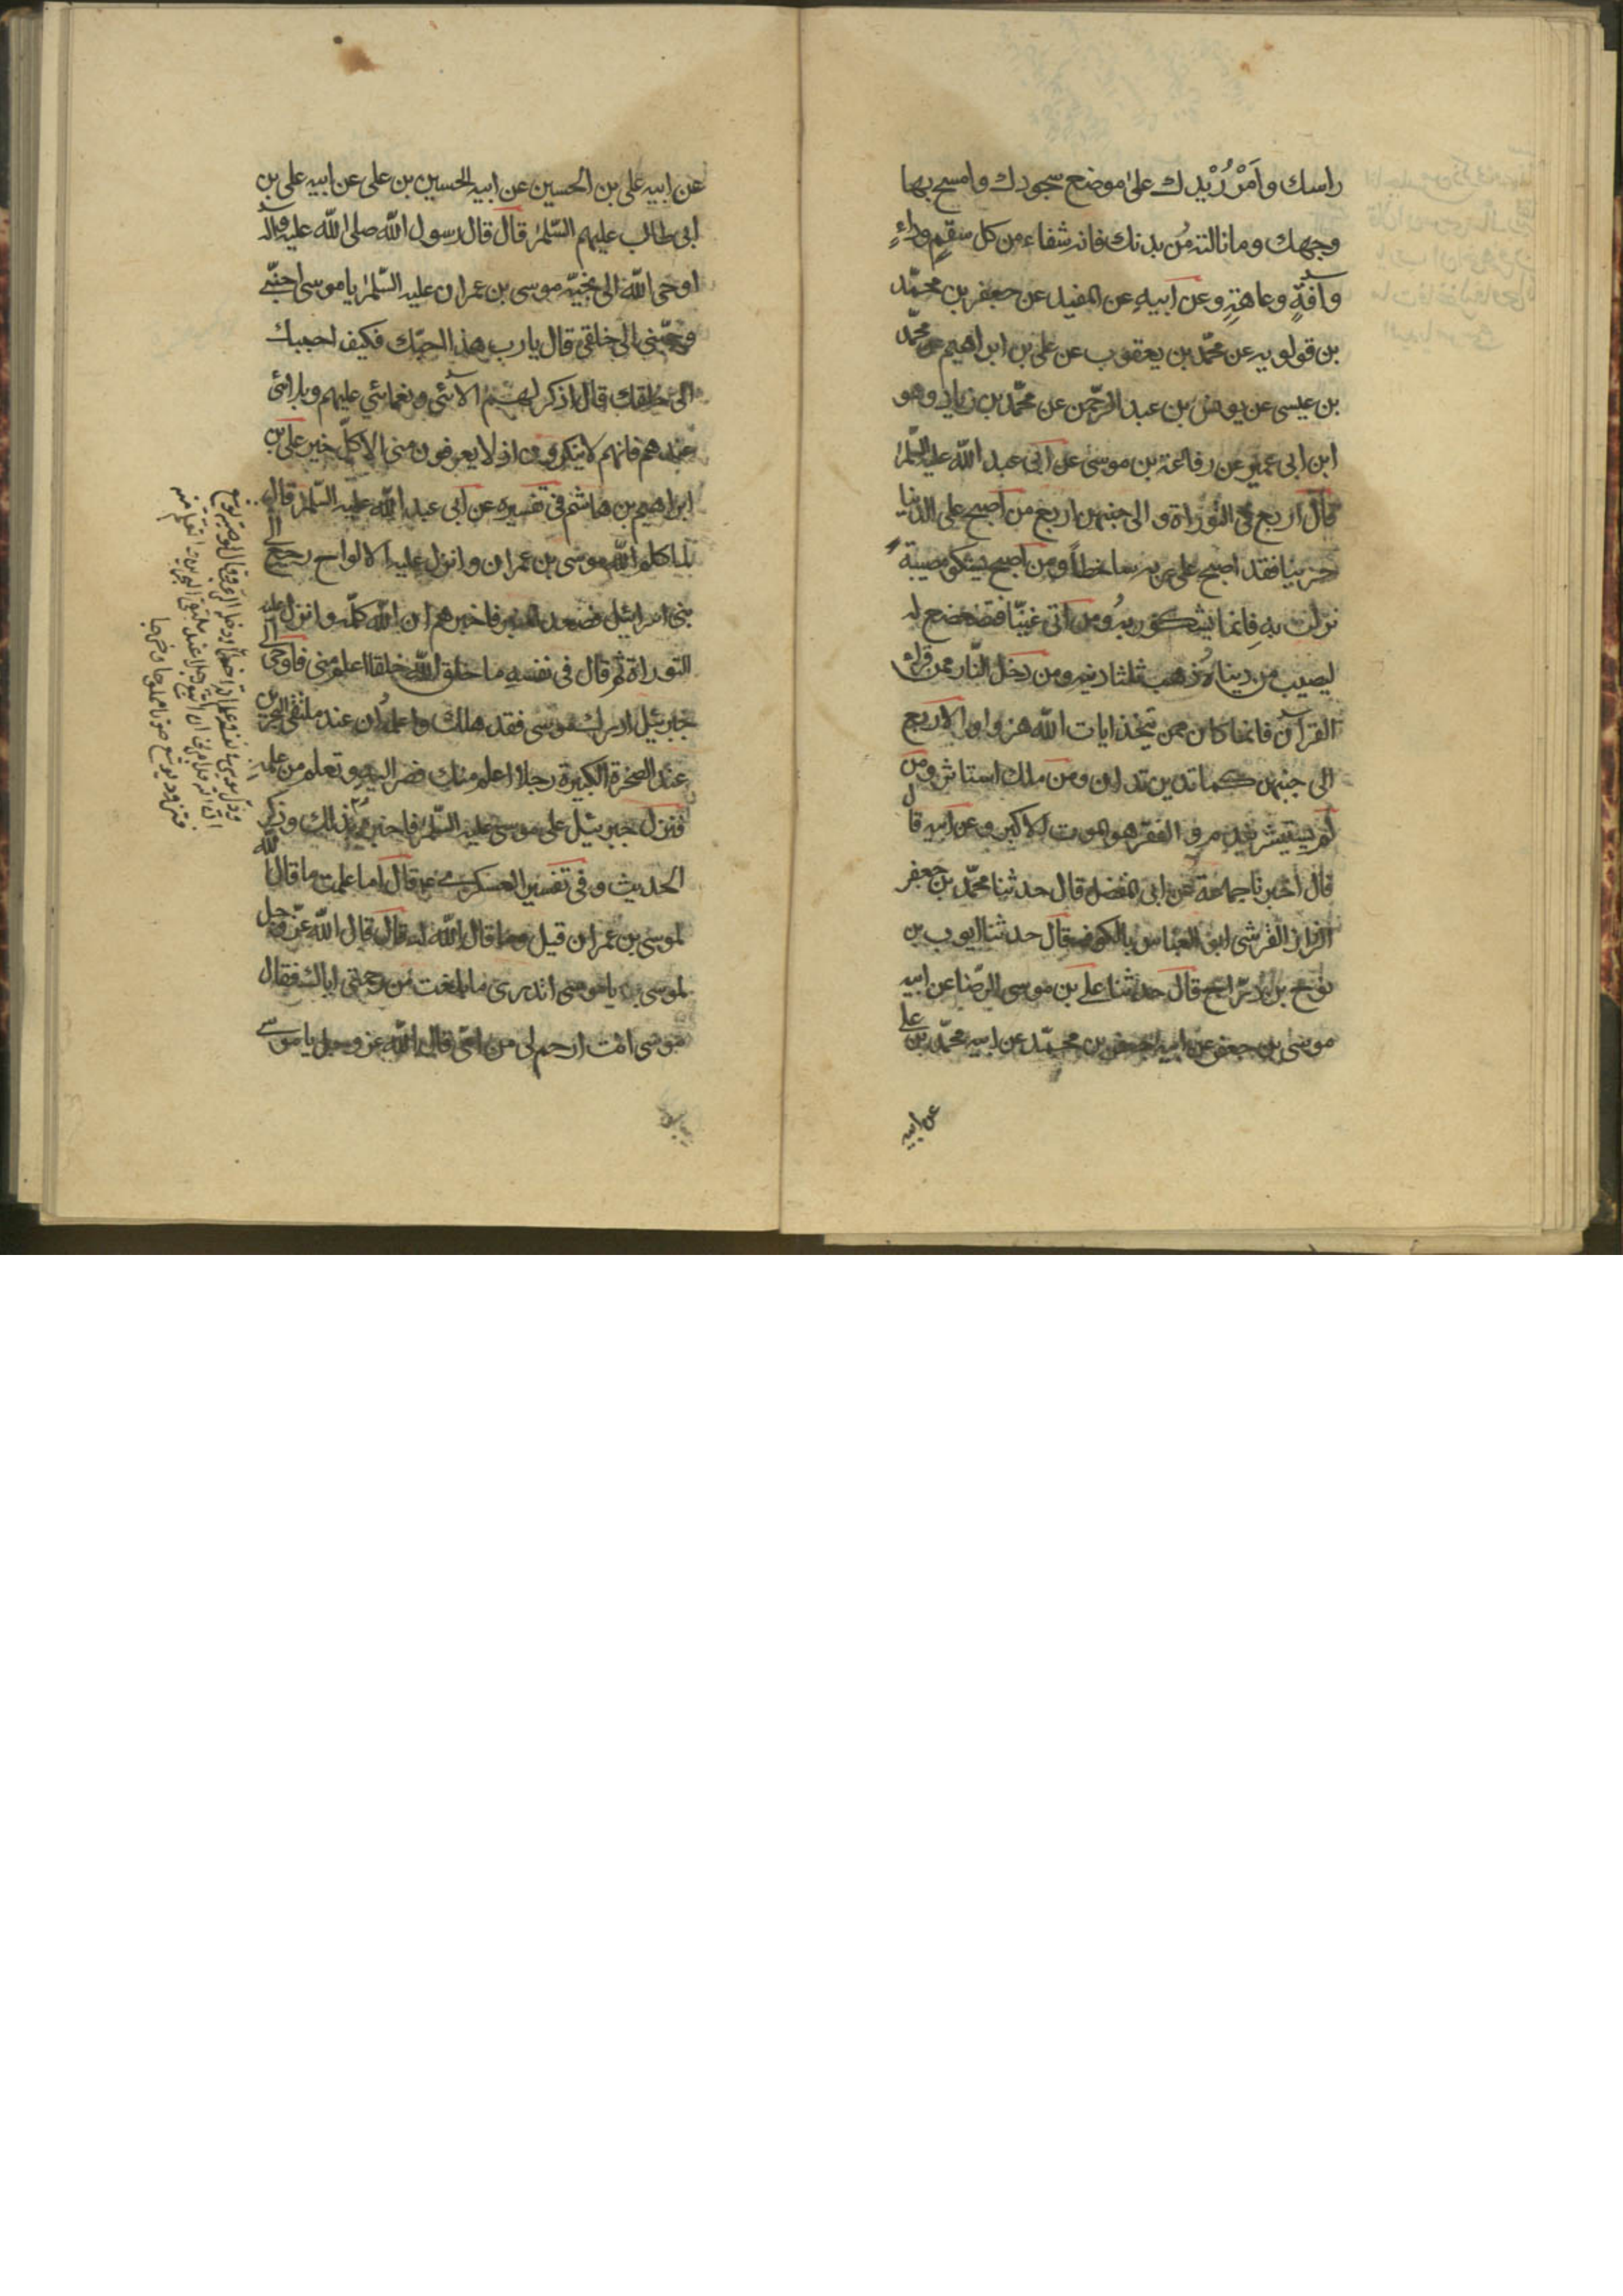 راسك وَاَمْرُرْ يدك على موضع سجودك وامسح بها
وجهك وما نالته من بدنك فانه شفاء من كل سقم وداءٍ
وافةٍ وعاهةٍ وعن ابيه عن المفيد عن جعفر بن محمّد
بن قولويه عن محمّد بن يعقوب عن على بن ابراهيم عن محمّد
بن عيسى عن يونس بن عبد الرّحمن عن محمّد بن زياد وهو
ابن ابى عمير عن رفاعة بن موسى عن ابى عبد الله عليه السّلم
قال اربع فى التوراة والى جنبهن اربع من اصبح على الدنيا
حزينا فقد اصبح على ربه ساخطاً ومن اصبح يشكو مصيبة
نزلت به فانما يشكو ربه ومن اتى غنيّا فتضعضع له
ليصيب من دنياه ذهب ثلثا دينه ومن دخل النّار ممن قراء
القرآن فانما كان ممن يتخذ ايات الله هزوا والاربع
الى جنبهن كما تدين تدان ومن ملك استاثر ومن
لم يستشر يندم والفقر هو الموت الاكبر وعن ابيه قال
قال اخبرنا جماعة عن ابى المفضل قال حدثنا محمّد بن جعفر
الرزاز القرشى ابو العباس بالكوفة قال حدثنا ايوب بن
نوح بن درّاج قال حدثنا على بن موسى الرّضا عن ابيه
موسى بن جعفر عن ابيه جعفر بن محمّد عن ابيه محمّد بن على
عن ابيه
عن ابيه على بن الحسين عن ابيه الحسين بن على عن ابيه على بن
ابى طالب عليهم السّلم قال قال رسول الله صلى الله عليه وآله
اوحى الله الى نجيّه موسى بن عمران عليه السّلم يا موسى احبّنى
وحبّبنى الى خلقى قال يا رب هذا احبّك فكيف احببك
الى خلقك قال اذكر لهم الائى ونعمائى عليهم وبلائى
عندهم فانهم لا ينكرون اذ لا يعرفون منى الا كلّ خير على بن
ابراهيم بن هاشم فى تفسيره عن ابى عبد الله عليه السّلم قال
لما كلم الله موسى بن عمران وانزل عليه الالواح رجع الى
بنى اسرائيل فصعد المنبر فاخبرهم ان الله كلّمه وانزل عليه
التوراة ثم قال فى نفسه ما خلق الله خلقا اعلم منى فاوحى الى
جبرئيل ادرك موسى فقد هلك واعلمه ان عند ملتقى البحرين
عند الصخرة الكبيرة رجلا اعلم منك فصر اليه وتعلم من علمه
فنزل جبرئيل على موسى عليه السّلم فاخبره بذلك وذكر
الحديث وفى تفسير العسكرى ع قال اما علمت ما قال الله
لموسى بن عمران قيل وما قال الله له قال قال الله عزّ وجل
لموسى يا موسى اتدرى ما بلغت من رحمتى اياك فقال
موسى انت ارحم لى من امّى قال الله عز وجل يا موسى
وذل موسى فى نفسه وعلم انه اخطأ ودخله الرعب وقال لوصيه يوشع
ان الله قد امرنى ان اتبع رجلا عند ملتقى البحرين اتعلم منه
فتزود يوشع حوتا مملوحا وخرجا